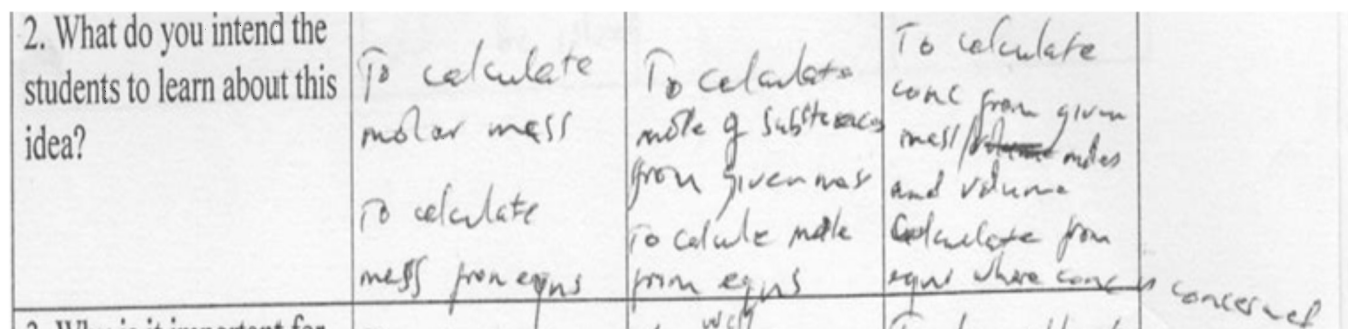 2. What do you intend the
students to learn about this
idea?
To calculate
molar mass
To calculate
mass from eqns
To calculate
mole of substances
from given mass
To calcule mole
from eqns
To calculate
conc from given
mass/ moles
and volume
Calculate from
eqns where conc is concerned
3. Why is it important for